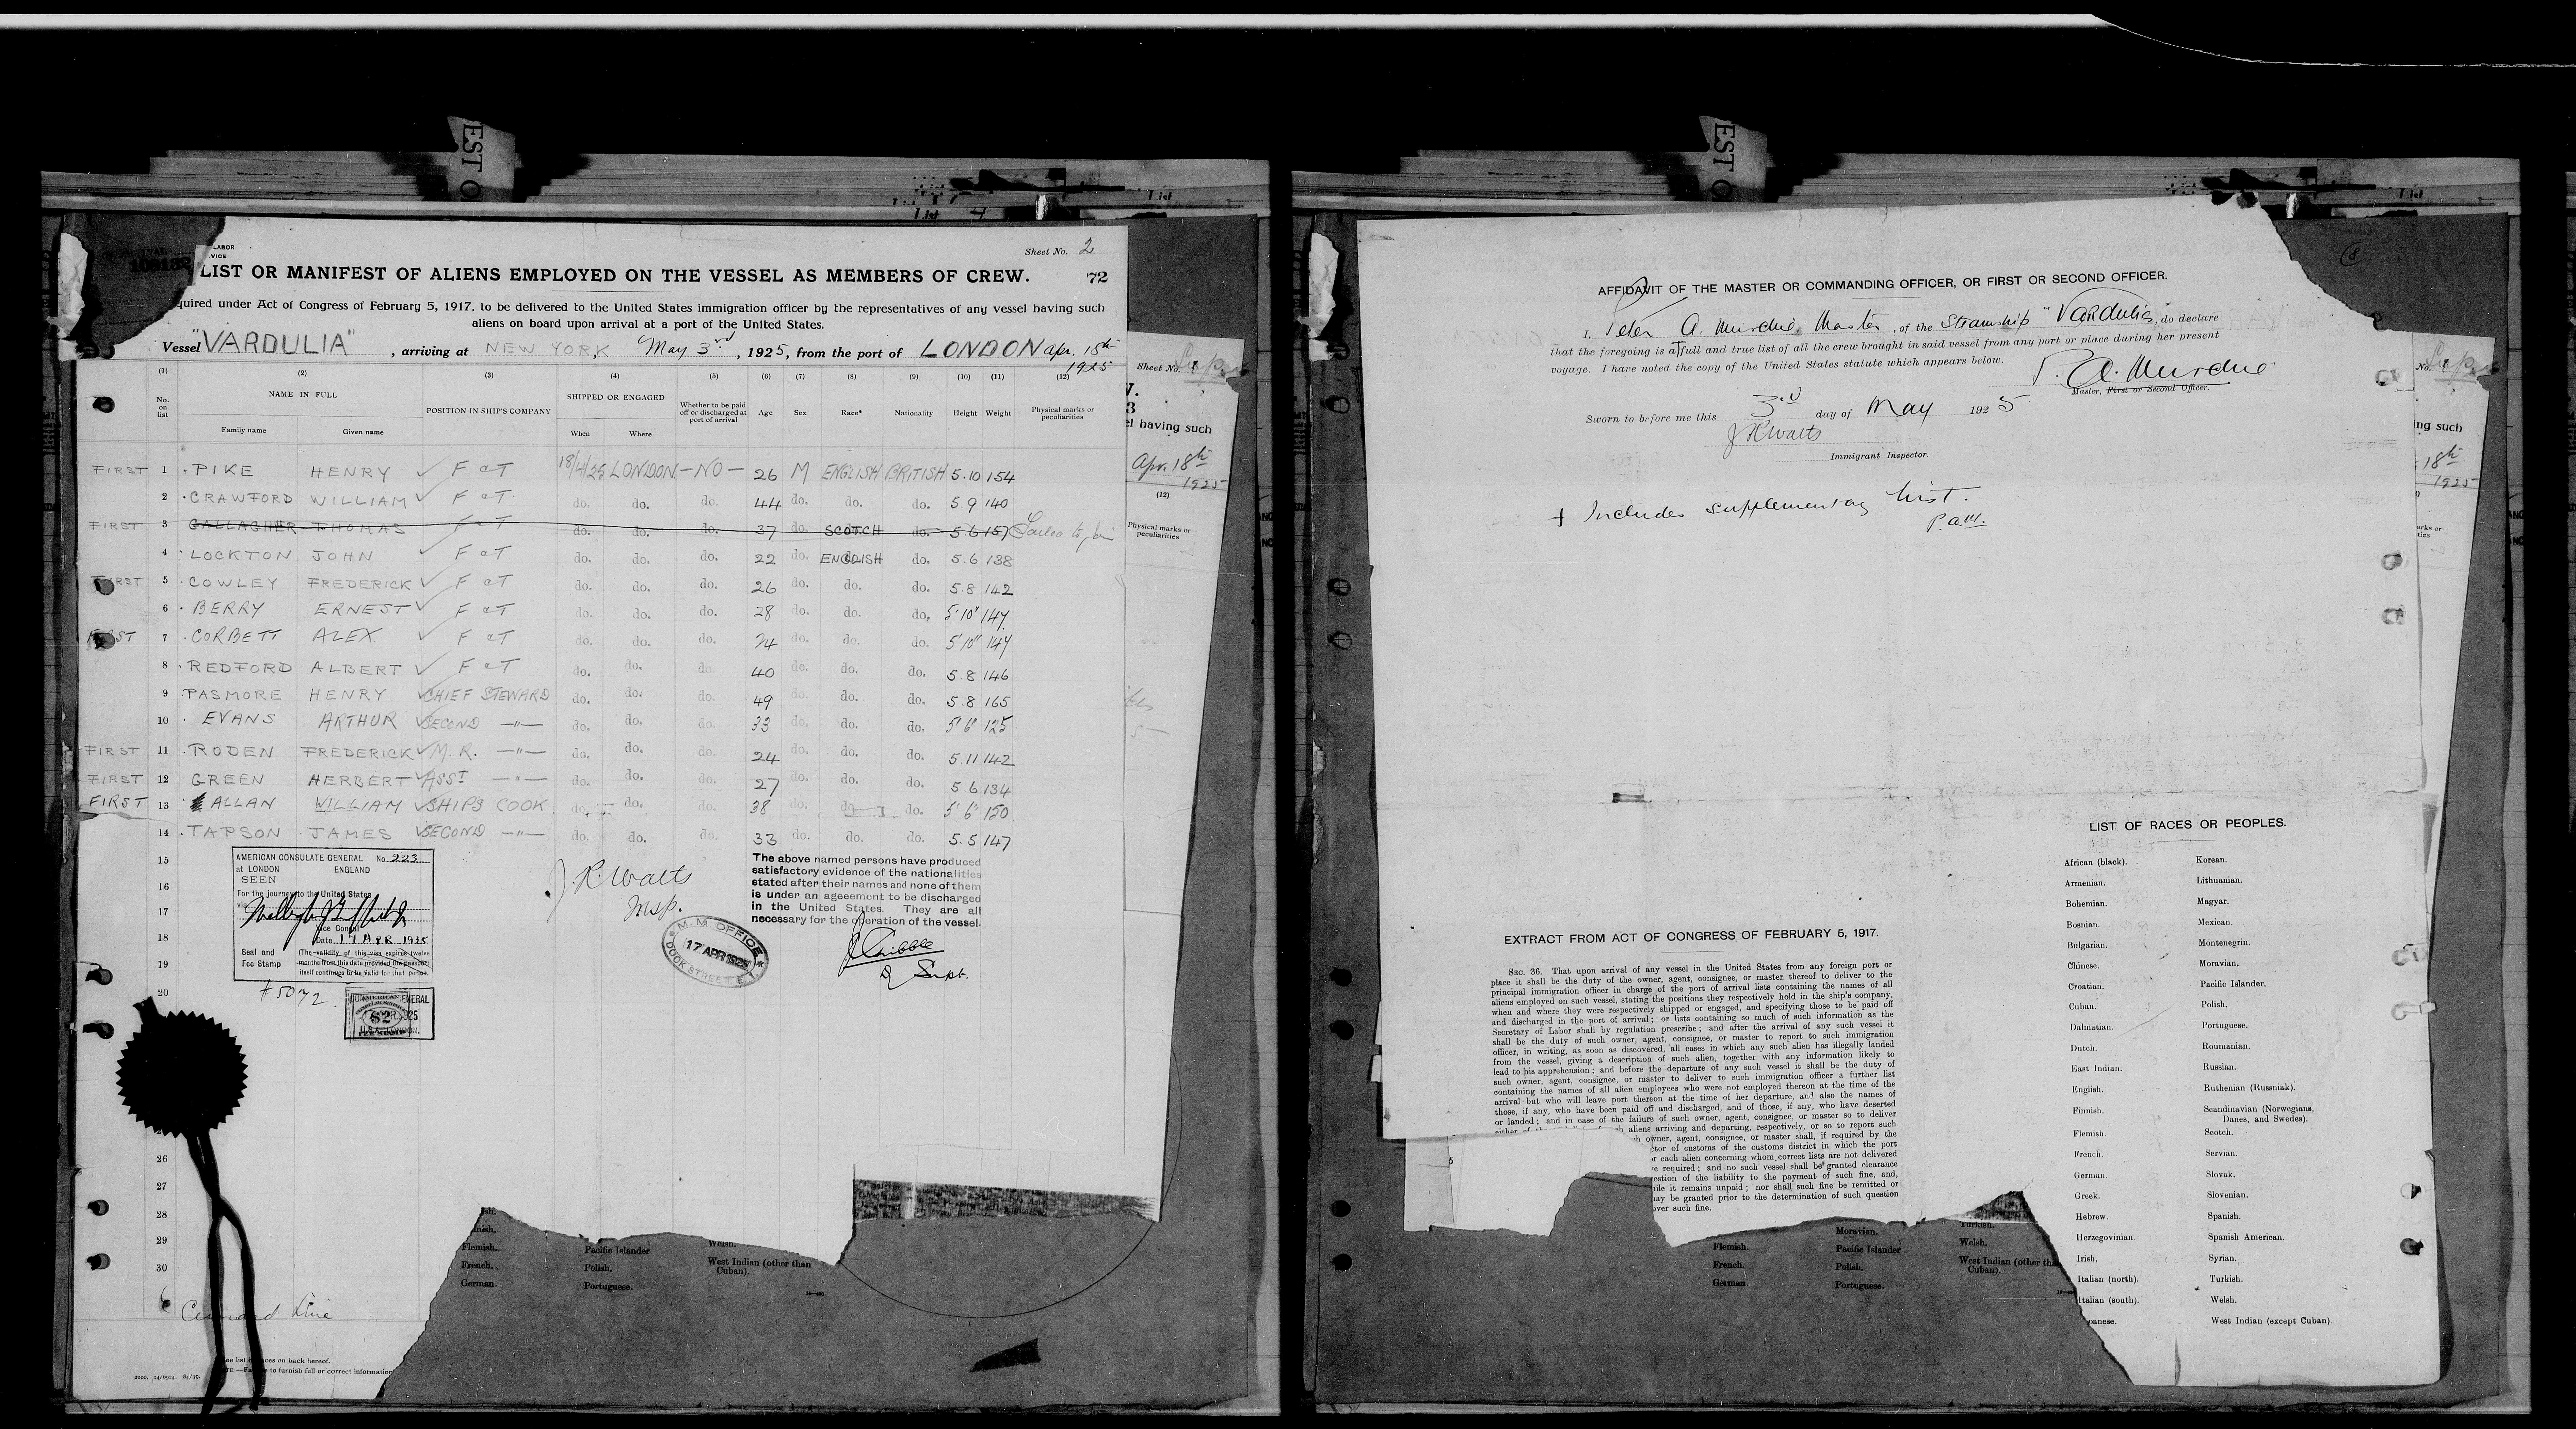 LABOR
VICE
Sheet No. 2
LIST OR MANIFEST OF ALIENS EMPLOYED ON THE VESSEL AS MEMBERS OF CREW.
72
quired under Act of Congress of February 5, 1917, to be delivered to the United States immigration officer by the representatives of any vessel having such
aliens on board upon arrival at a port of the United States.
Vessel "VARDULIA", arriving at NEW YORK, May 3rd, 1925, from the port of LONDON Apr. 18th
1925
(1) (2) (3) (4) (5) (6) (7) (8) (9) (10) (11) (12)
No. on list
NAME IN FULL
Family name
Given name
POSITION IN SHIP'S COMPANY
SHIPPED OR ENGAGED
When
Where
Whether to be paid off or discharged at port of arrival
Age
Sex
Race*
Nationality
Height
Weight
Physical marks or peculiarities
FIRST 1 PIKE HENRY ✓ F & T 18/4/25 LONDON - NO - 26 M ENGLISH BRITISH 5.10 154
2 CRAWFORD WILLIAM ✓ F & T do. do. do. 44 do. do. do. 5 9 140
FIRST 3 GALLAGHER THOMAS F & T do. do. do. 37 do. SCOTCH do. 5.6 157 Failed to join
4 LOCKTON JOHN ✓ F & T do. do. do. 22 do. ENGLISH do. 5.6 138
FIRST 5 COWLEY FREDERICK ✓ F & T do. do. do. 26 do. do. do. 5.8 142
6 BERRY ERNEST ✓ F & T do. do. do. 28 do. do. do. 5'10" 147
FIRST 7 CORBETT ALEX ✓ F & T do. do. do. 24 do. do. do. 5'10" 147
8 REDFORD ALBERT ✓ F & T do. do. do. 40 do. do. do. 5.8 146
9 PASMORE HENRY ✓ CHIEF STEWARD do. do. do. 49 do. do. do. 5.8 165
10 EVANS ARTHUR ✓ SECOND -"- do. do. do. 33 do. do. do. 5'6" 125
FIRST 11 RODEN FREDERICK ✓ M.R. -"- do. do. do. 24 do. do. do. 5.11 142
FIRST 12 GREEN HERBERT ✓ ASST -"- do. do. do. 27 do. do. do. 5.6 134
FIRST 13 ALLAN WILLIAM ✓ SHIPS COOK do. do. do. 38 do. do. do. 5'6" 150
14 TAPSON JAMES ✓ SECOND -"- do. do. do. 33 do. do. do. 5.5 147
15
16
17
18
19
20
26
27
28
29
30
AMERICAN CONSULATE GENERAL No 223
at LONDON ENGLAND
SEEN
For the journey to the United States
via
Vice Consul
Date 17 APR 1925
Seal and
Fee Stamp
(The validity of this visa expires twelve
months from this date provided the passport
itself continues to be valid for that period.
#5072
AMERICAN
$2
J. R. Watts
Insp.
The above named persons have produced
satisfactory evidence of the nationalities
stated after their names and none of them
is under an ageeement to be discharged
in the United States. They are all
necessary for the operation of the vessel.
M. M. OFFICE
17 APR 1925
DOCK STREET. E.
Supt.
Cunard Line
ee list of races on back hereof.
to furnish full or correct information
2000. 14/6924. 84/35.
Flemish.
French.
German.
Pacific Islander
Polish.
Portuguese.
Welsh.
West Indian (other than
Cuban).
Sheet No.
having such
Apr. 18th
1925
(12)
Physical marks or
peculiarities
AFFIDAVIT OF THE MASTER OR COMMANDING OFFICER, OR FIRST OR SECOND OFFICER.
I, Peter A. Murchie, Master, of the Steamship "Vardulia, do declare
that the foregoing is a full and true list of all the crew brought in said vessel from any port or place during her present
voyage. I have noted the copy of the United States statute which appears below.
P. A. Murchie
Master, First or Second Officer.
Sworn to before me this 3rd day of May 1925
J R Watts
Immigrant Inspector.
+ Includes supplementary List.
P.A.M.
EXTRACT FROM ACT OF CONGRESS OF FEBRUARY 5, 1917.
SEC. 36. That upon arrival of any vessel in the United States from any foreign port or
place it shall be the duty of the owner, agent, consignee, or master thereof to deliver to the
principal immigration officer in charge of the port of arrival lists containing the names of all
aliens employed on such vessel, stating the positions they respectively hold in the ship's company,
when and where they were respectively shipped or engaged, and specifying those to be paid off
and discharged in the port of arrival; or lists containing so much of such information as the
Secretary of Labor shall by regulation prescribe; and after the arrival of any such vessel it
shall be the duty of such owner, agent, consignee, or master to report to such immigration
officer, in writing, as soon as discovered, all cases in which any such alien has illegally landed
from the vessel, giving a description of such alien, together with any information likely to
lead to his apprehension; and before the departure of any such vessel it shall be the duty of
such owner, agent, consignee, or master to deliver to such immigration officer a further list
containing the names of all alien employees who were not employed thereon at the time of the
arrival but who will leave port thereon at the time of her departure, and also the names of
those, if any, who have been paid off and discharged, and of those, if any, who have deserted
or landed; and in case of the failure of such owner, agent, consignee, or master so to deliver
aliens arriving and departing, respectively, or so to report such
owner, agent, consignee, or master shall, if required by the
ctor of customs of the customs district in which the port
r each alien concerning whom correct lists are not delivered
e required; and no such vessel shall be granted clearance
estion of the liability to the payment of such fine, and,
ile it remains unpaid; nor shall such fine be remitted or
ay be granted prior to the determination of such question
over such fine.
LIST OF RACES OR PEOPLES.
African (black).
Armenian.
Bohemian.
Bosnian.
Bulgarian.
Chinese.
Croatian.
Cuban.
Dalmatian.
Dutch.
East Indian.
English.
Finnish.
Flemish.
French.
German.
Greek.
Hebrew.
Herzegovinian.
Irish.
Italian (north).
Italian (south).
panese.
Korean.
Lithuanian.
Magyar.
Mexican.
Montenegrin.
Moravian.
Pacific Islander.
Polish.
Portuguese.
Roumanian.
Russian.
Ruthenian (Russniak).
Scandinavian (Norwegians,
Danes, and Swedes).
Scotch.
Servian.
Slovak.
Slovenian.
Spanish.
Spanish American.
Syrian.
Turkish.
Welsh.
West Indian (except Cuban)
Flemish.
French.
German.
Moravian.
Pacific Islander
Polish.
Portuguese.
Turkish.
Welsh.
West Indian (other tha
Cuban).
ng such
18th
1925